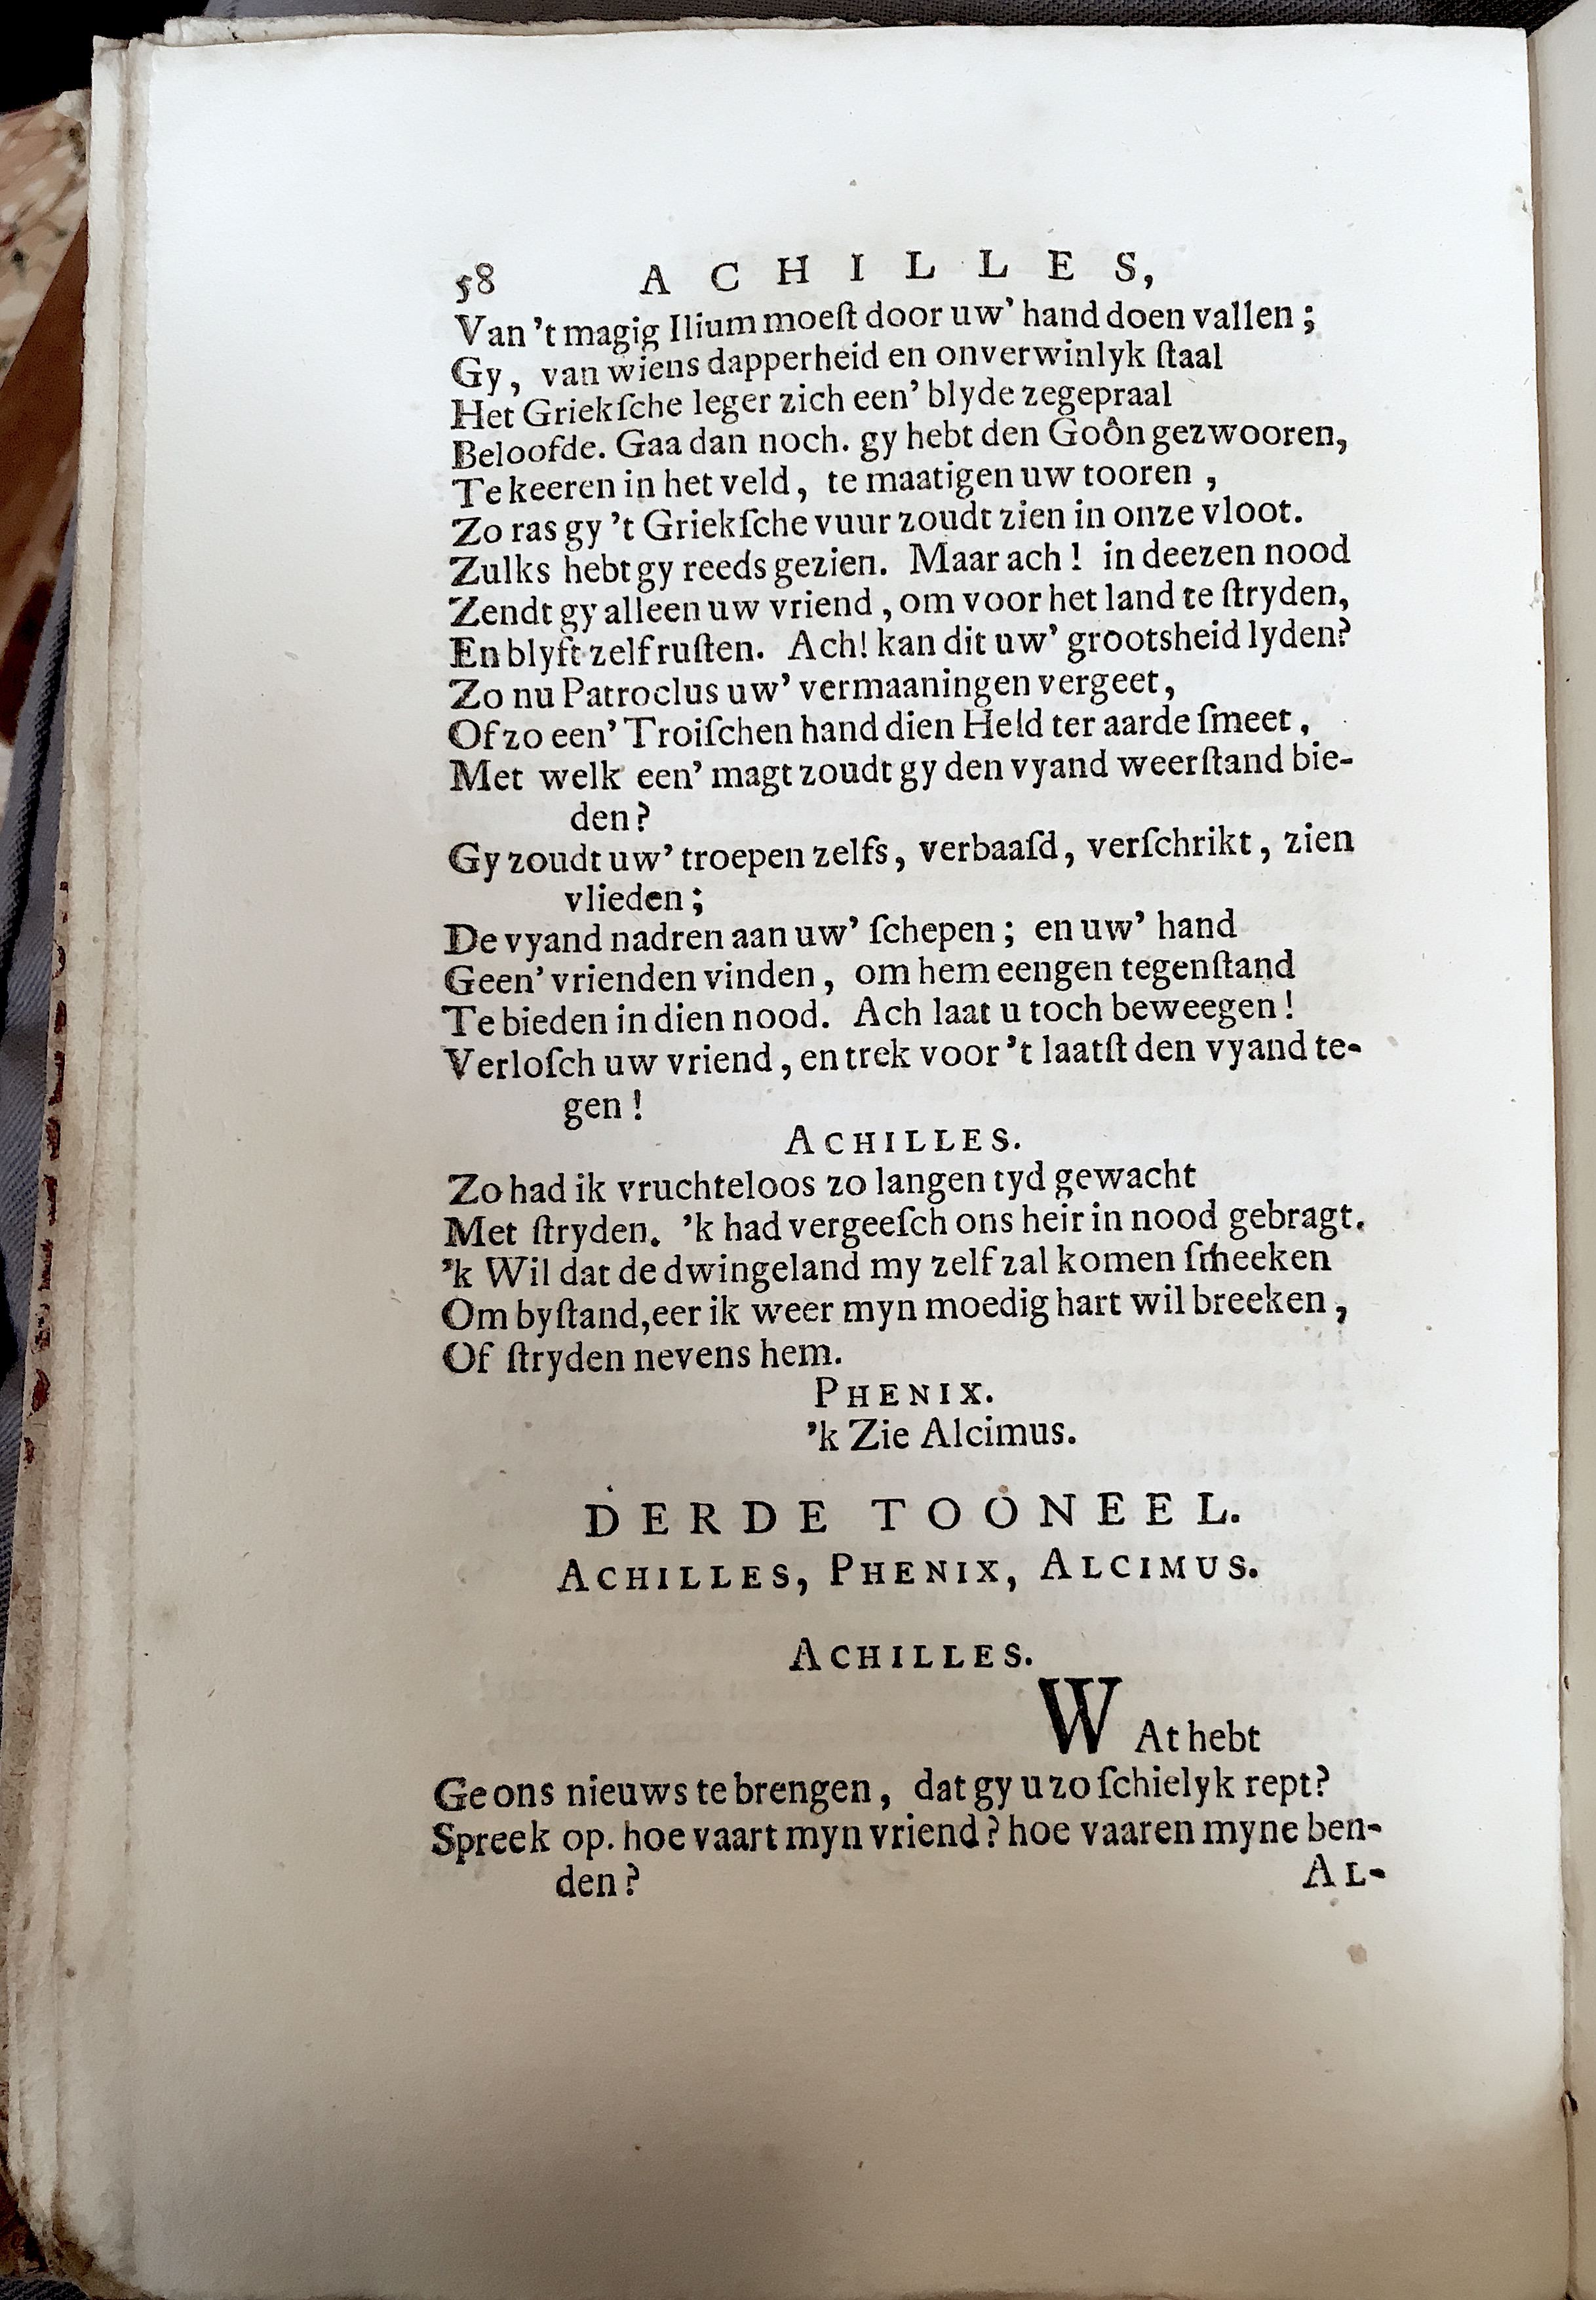 58 ACHILLES,
Van 't magig Ilium moeſt door uw' hand doen vallen;
Gy, van wiens dapperheid en onverwinlyk ſtaal
Het Griekſche leger zich een' blyde zegepraal
Beloofde. Gaa dan noch. gy hebt den Goôn gezwooren,
Te keeren in het veld, te maatigen uw tooren,
Zo ras gy 't Griekſche vuur zoudt zien in onze vloot.
Zulks hebt gy reeds gezien. Maar ach! in deezen nood
Zendt gy alleen uw vriend, om voor het land te ſtryden,
En blyft zelf ruſten. Ach! kan dit uw' grootsheid lyden?
Zo nu Patroclus uw' vermaaningen vergeet,
Of zo een' Troiſchen hand dien Held ter aarde ſmeet,
Met welk een' magt zoudt gy den vyand weerſtand bie-
den?
Gy zoudt uw' troepen zelfs, verbaaſd, verſchrikt, zien
vlieden;
De vyand nadren aan uw' ſchepen; en uw' hand
Geen' vrienden vinden, om hem eengen tegenſtand
Te bieden in dien nood. Ach laat u toch beweegen!
Verloſch uw vriend, en trek voor 't laatſt den vyand te-
gen!
ACHILLES.
Zo had ik vruchteloos zo langen tyd gewacht
Met ſtryden. 'k had vergeeſch ons heir in nood gebragt.
'k Wil dat de dwingeland my zelf zal komen ſmeeken
Om byſtand, eer ik weer myn moedig hart wil breeken,
Of ſtryden nevens hem.
PHENIX.
'k Zie Alcimus.
DERDE TOONEEL.
ACHILLES, PHENIX, ALCIMUS.
ACHILLES.
WAt hebt
Ge ons nieuws te brengen, dat gy u zo ſchielyk rept?
Spreek op. hoe vaart myn vriend? hoe vaaren myne ben-
den?
AL-